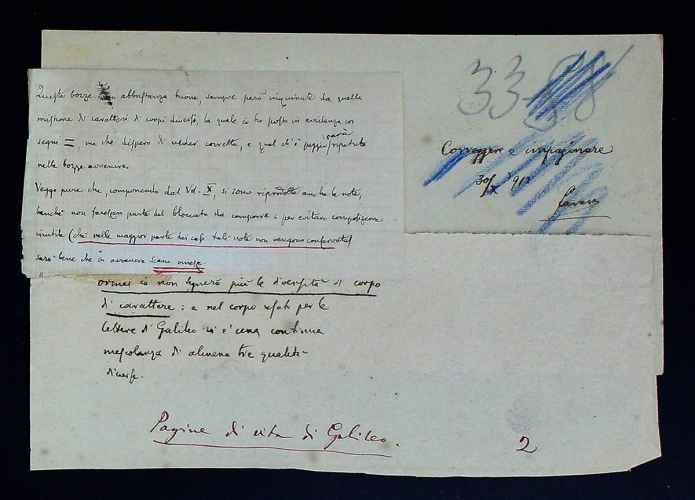 Queste bozze son abbastanza buone, sempre però inquinate da quella
mistione di caratteri di corpi diversi, la quale io ho posto in evidenza coi
segni =, ma che dispero di veder corretta, e qual ch'è peggio sarà ripetuta
nelle bozze avvenire.
Veggo pure che, componendo dal Vol. X, si sono riprodotte anche le note,
benché non facessero parte del bloccato da comporre: per evitare composizione
inutile (ché nella maggior parte dei casi tali note non vengono conservate)
sarà bene che in avvenire siano omesse.
ormai io non segnerò più le diversità di corpo
di carattere: e nel corpo usato per le
lettere di Galileo vi è una continua
mescolanza di almeno tre qualità
diverse.
33-98
Correggere e impaginare
30/X 1912
Favaro
Pagine di vita di Galileo.
2